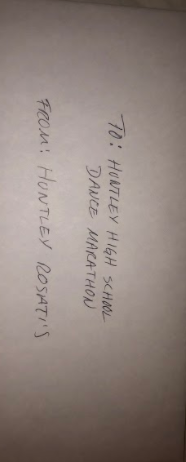 TO: HUNTLEY HIGH SCHOOL
DANCE MARATHON
FROM: HUNTLEY ROSATI'S